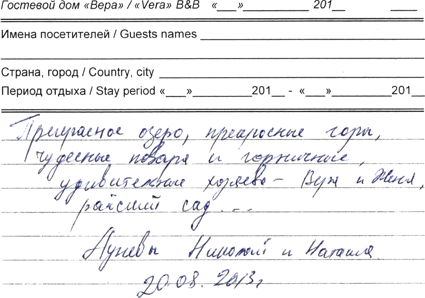 Гостевой дом «Вера» / «Vera» B&B «___»__________ 201__ ____
Имена посетителей / Guests names
Страна, город / Country, city
Период отдыха / Stay period «___»________201__ - «___»________201__
Прекрасное озеро, прекрасные горы,
чудесные повара и горничные,
удивительные хозяева - Вера и Женя,
райский сад...
Николай и Наташа
20.08.2013г.